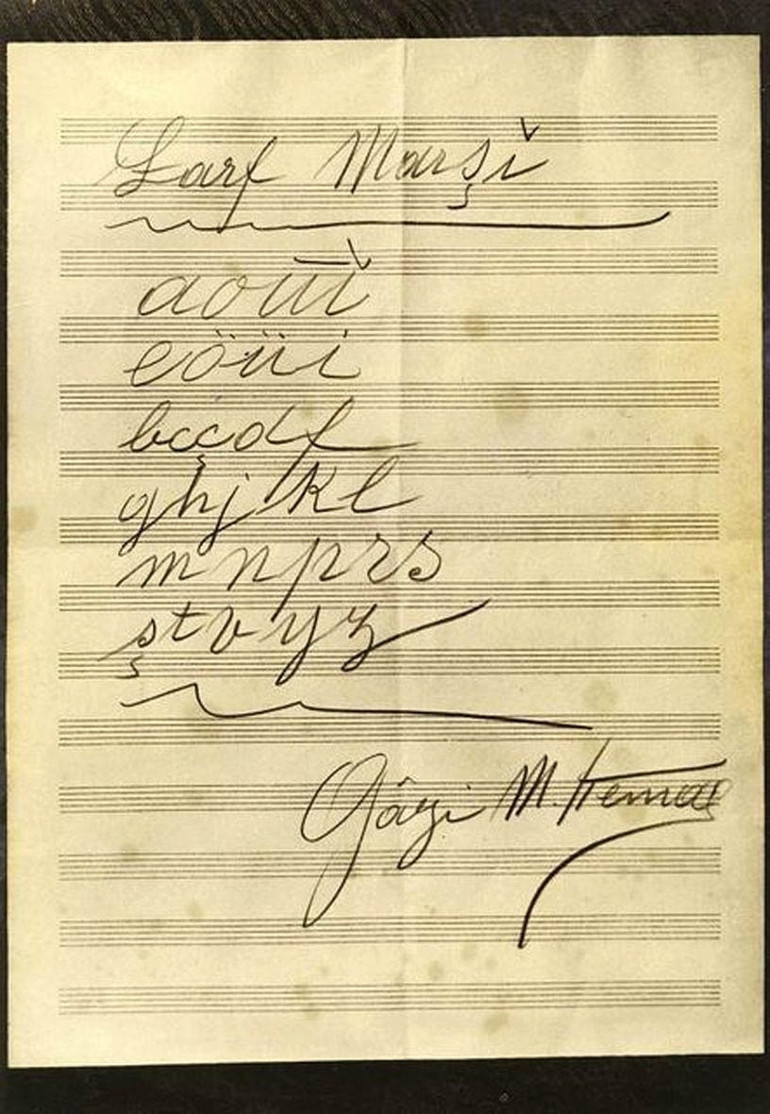 Harf Marşǐ
aouǐ
eöüi
bcçdf
ghjkl
mnprs
ştvyz
Gâzi M. Kemal